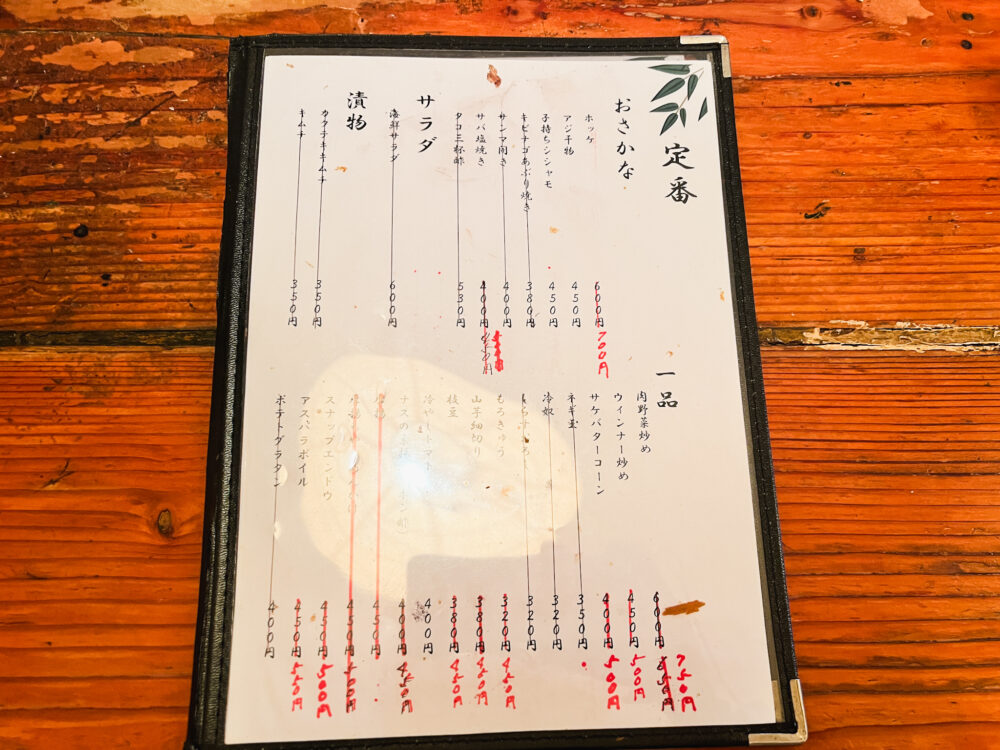 定番
おさかな
ホッケ 600円 700円
アジ干物 450円
子持ちシシャモ 450円
キビナゴあぶり焼き 380円
サンマ開き 400円
サバ塩焼き 400円
タコ三杯酢 530円
サラダ
海鮮サラダ 600円
漬物
カクテキキムチ 350円
キムチ 350円
一品
肉野菜炒め 600円 750円
ウィンナー炒め 450円 500円
サケバターコーン 400円 500円
ネギ玉 350円
冷奴 320円
320円
もろきゅう 320円 450円
山芋細切り 380円 450円
枝豆 380円 450円
冷やしトマト 400円
ナスの 400円 450円
450円
450円
スナップエンドウ 450円 500円
アスパラボイル 450円 550円
ポテトグラタン 400円